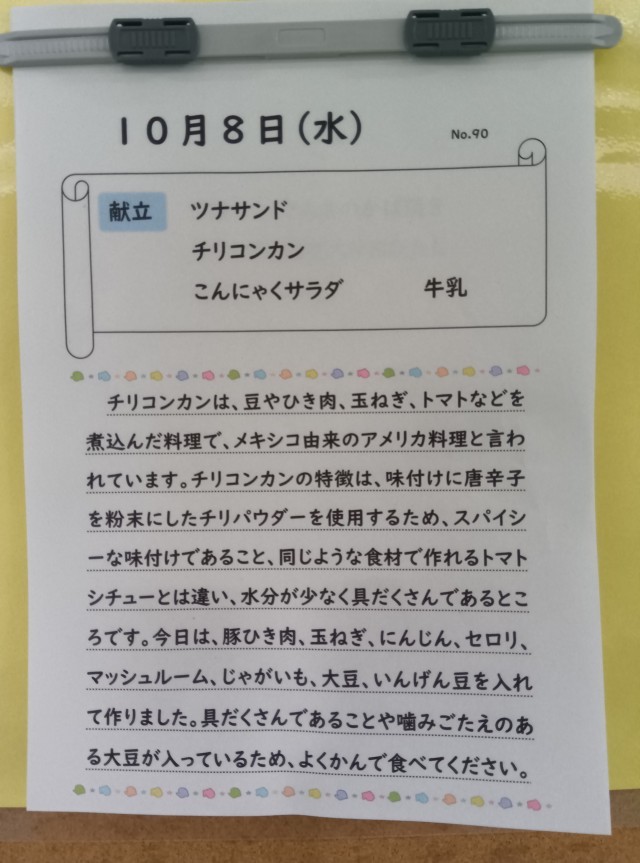 10月8日(水) No.90
献立 ツナサンド
チリコンカン
こんにゃくサラダ 牛乳
チリコンカンは、豆やひき肉、玉ねぎ、トマトなどを
煮込んだ料理で、メキシコ由来のアメリカ料理と言わ
れています。チリコンカンの特徴は、味付けに唐辛子
を粉末にしたチリパウダーを使用するため、スパイシ
ーな味付けであること、同じような食材で作れるトマト
シチューとは違い、水分が少なく具だくさんであるとこ
ろです。今日は、豚ひき肉、玉ねぎ、にんじん、セロリ、
マッシュルーム、じゃがいも、大豆、いんげん豆を入れ
て作りました。具だくさんであることや噛みごたえのあ
る大豆が入っているため、よくかんで食べてください。